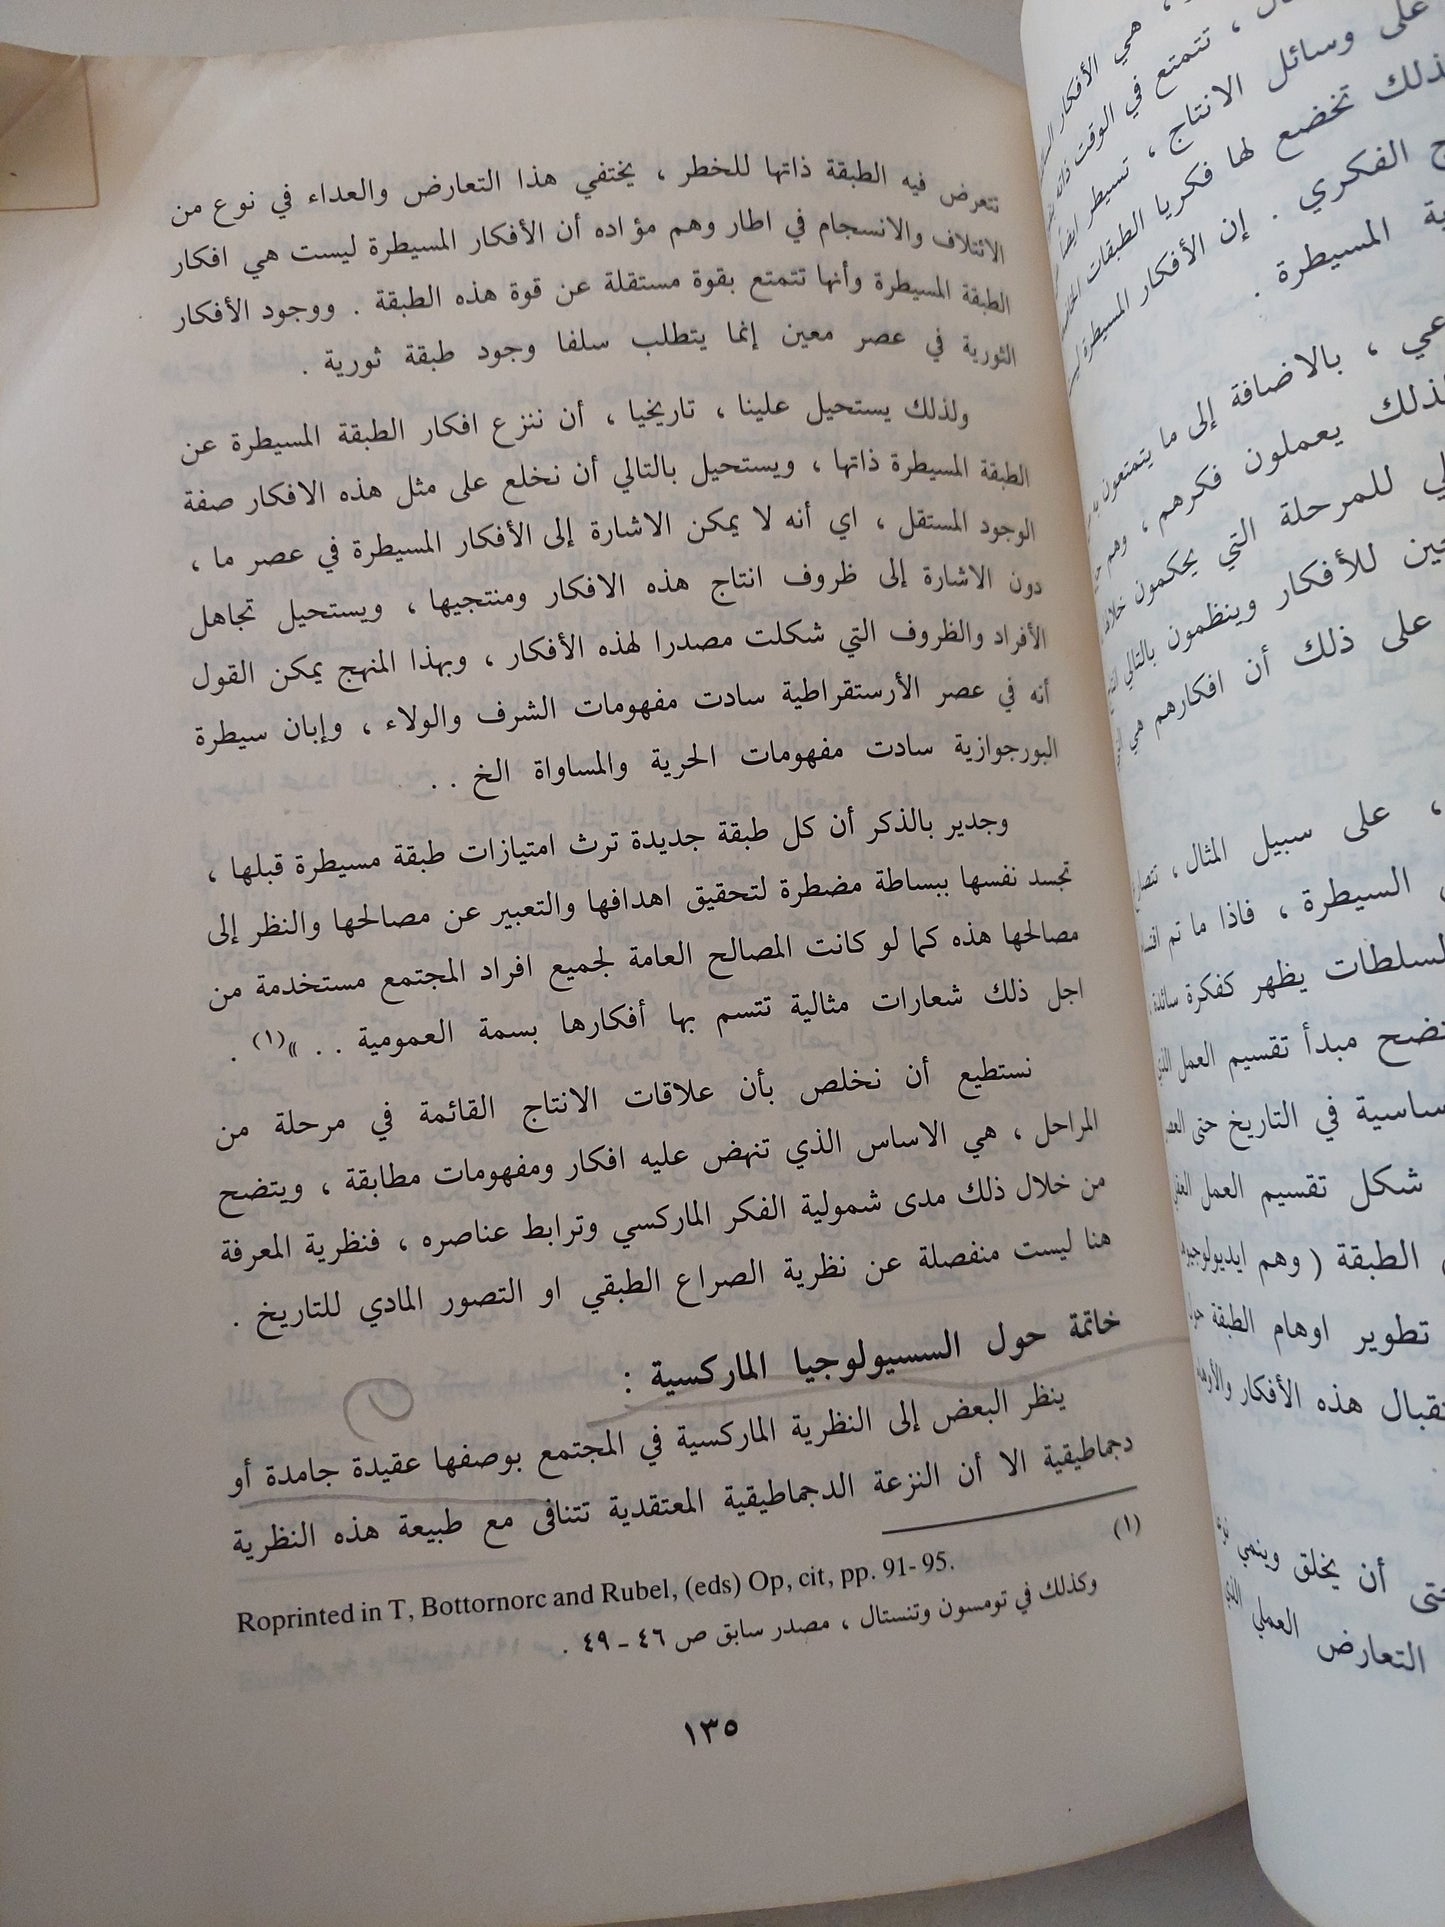 تتعرض فيه الطبقة ذاتها للخطر ، يختفي هذا التعارض والعداء في نوع من
الائتلاف والانسجام في اطار وهم مؤاده أن الأفكار المسيطرة ليست هي افكار
الطبقة المسيطرة وأنها تتمتع بقوة مستقلة عن قوة هذه الطبقة . ووجود الأفكار
الثورية في عصر معين إنما يتطلب سلفا وجود طبقة ثورية .
ولذلك يستحيل علينا ، تاريخيا ، أن ننزع افكار الطبقة المسيطرة عن
الطبقة المسيطرة ذاتها ، ويستحيل بالتالي أن نخلع على مثل هذه الافكار صفة
الوجود المستقل ، اي أنه لا يمكن الاشارة إلى الأفكار المسيطرة في عصر ما ،
دون الاشارة إلى ظروف انتاج هذه الافكار ومنتجيها ، ويستحيل تجاهل
الأفراد والظروف التي شكلت مصدرا لهذه الأفكار ، وبهذا المنهج يمكن القول
أنه في عصر الأرستقراطية سادت مفهومات الشرف والولاء ، وإبان سيطرة
البورجوازية سادت مفهومات الحرية والمساواة الخ . .
وجدير بالذكر أن كل طبقة جديدة ترث امتيازات طبقة مسيطرة قبلها ،
تجسد نفسها ببساطة مضطرة لتحقيق اهدافها والتعبير عن مصالحها والنظر إلى
مصالحها هذه كما لو كانت المصالح العامة لجميع افراد المجتمع مستخدمة من
اجل ذلك شعارات مثالية تتسم بها أفكارها بسمة العمومية . . »(١) .
نستطيع أن نخلص بأن علاقات الانتاج القائمة في مرحلة من
المراحل ، هي الاساس الذي تنهض عليه افكار ومفهومات مطابقة ، ويتضح
من خلال ذلك مدى شمولية الفكر الماركسي وترابط عناصره ، فنظرية المعرفة
هنا ليست منفصلة عن نظرية الصراع الطبقي او التصور المادي للتاريخ .
خاتمة حول السسيولوجيا الماركسية :
ينظر البعض إلى النظرية الماركسية في المجتمع بوصفها عقيدة جامدة أو
دجماطيقية الا أن النزعة الدجماطيقية المعتقدية تتنافى مع طبيعة هذه النظرية
(١)
Roprinted in T, Bottornorc and Rubel, (eds) Op, cit, pp. 91-95.
وكذلك في تومسون وتنستال ، مصدر سابق ص ٤٦ - ٤٩ .
١٣٥
، هي الأفكار
، تتمتع في الوقت ذاته
على وسائل الانتاج ، تسيطر ايضا
تخضع لها فكريا الطبقات
الفكري . إن الأفكار المسيطرة
المسيطرة .
، بالاضافة إلى ما يتمتعون
يعملون فكرهم ، وهم
للمرحلة التي يحكمون
للأفكار وينظمون بالتالي
على ذلك أن افكارهم هي
، على سبيل المثال ،
السيطرة ، فاذا ما تم
السلطات يظهر كفكرة سائدة
مبدأ تقسيم العمل الذي
في التاريخ حتى
شكل تقسيم العمل
الطبقة ( وهم
تطوير اوهام الطبقة
هذه الأفكار
أن يخلق وينمي
التعارض العملي الذي